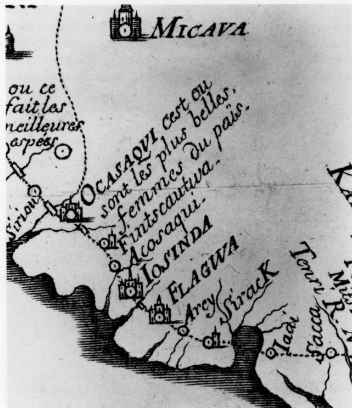 MICAVA
ou ce
fait les
meilleures
espees
OCASAQUI cest ou
sont les plus belles.
femmes du païs.
Fintscautwa.
Acosaqui.
IOSINDA
FLAGWA
Arey
SIRACK
Iadi
Sacca
Tenri